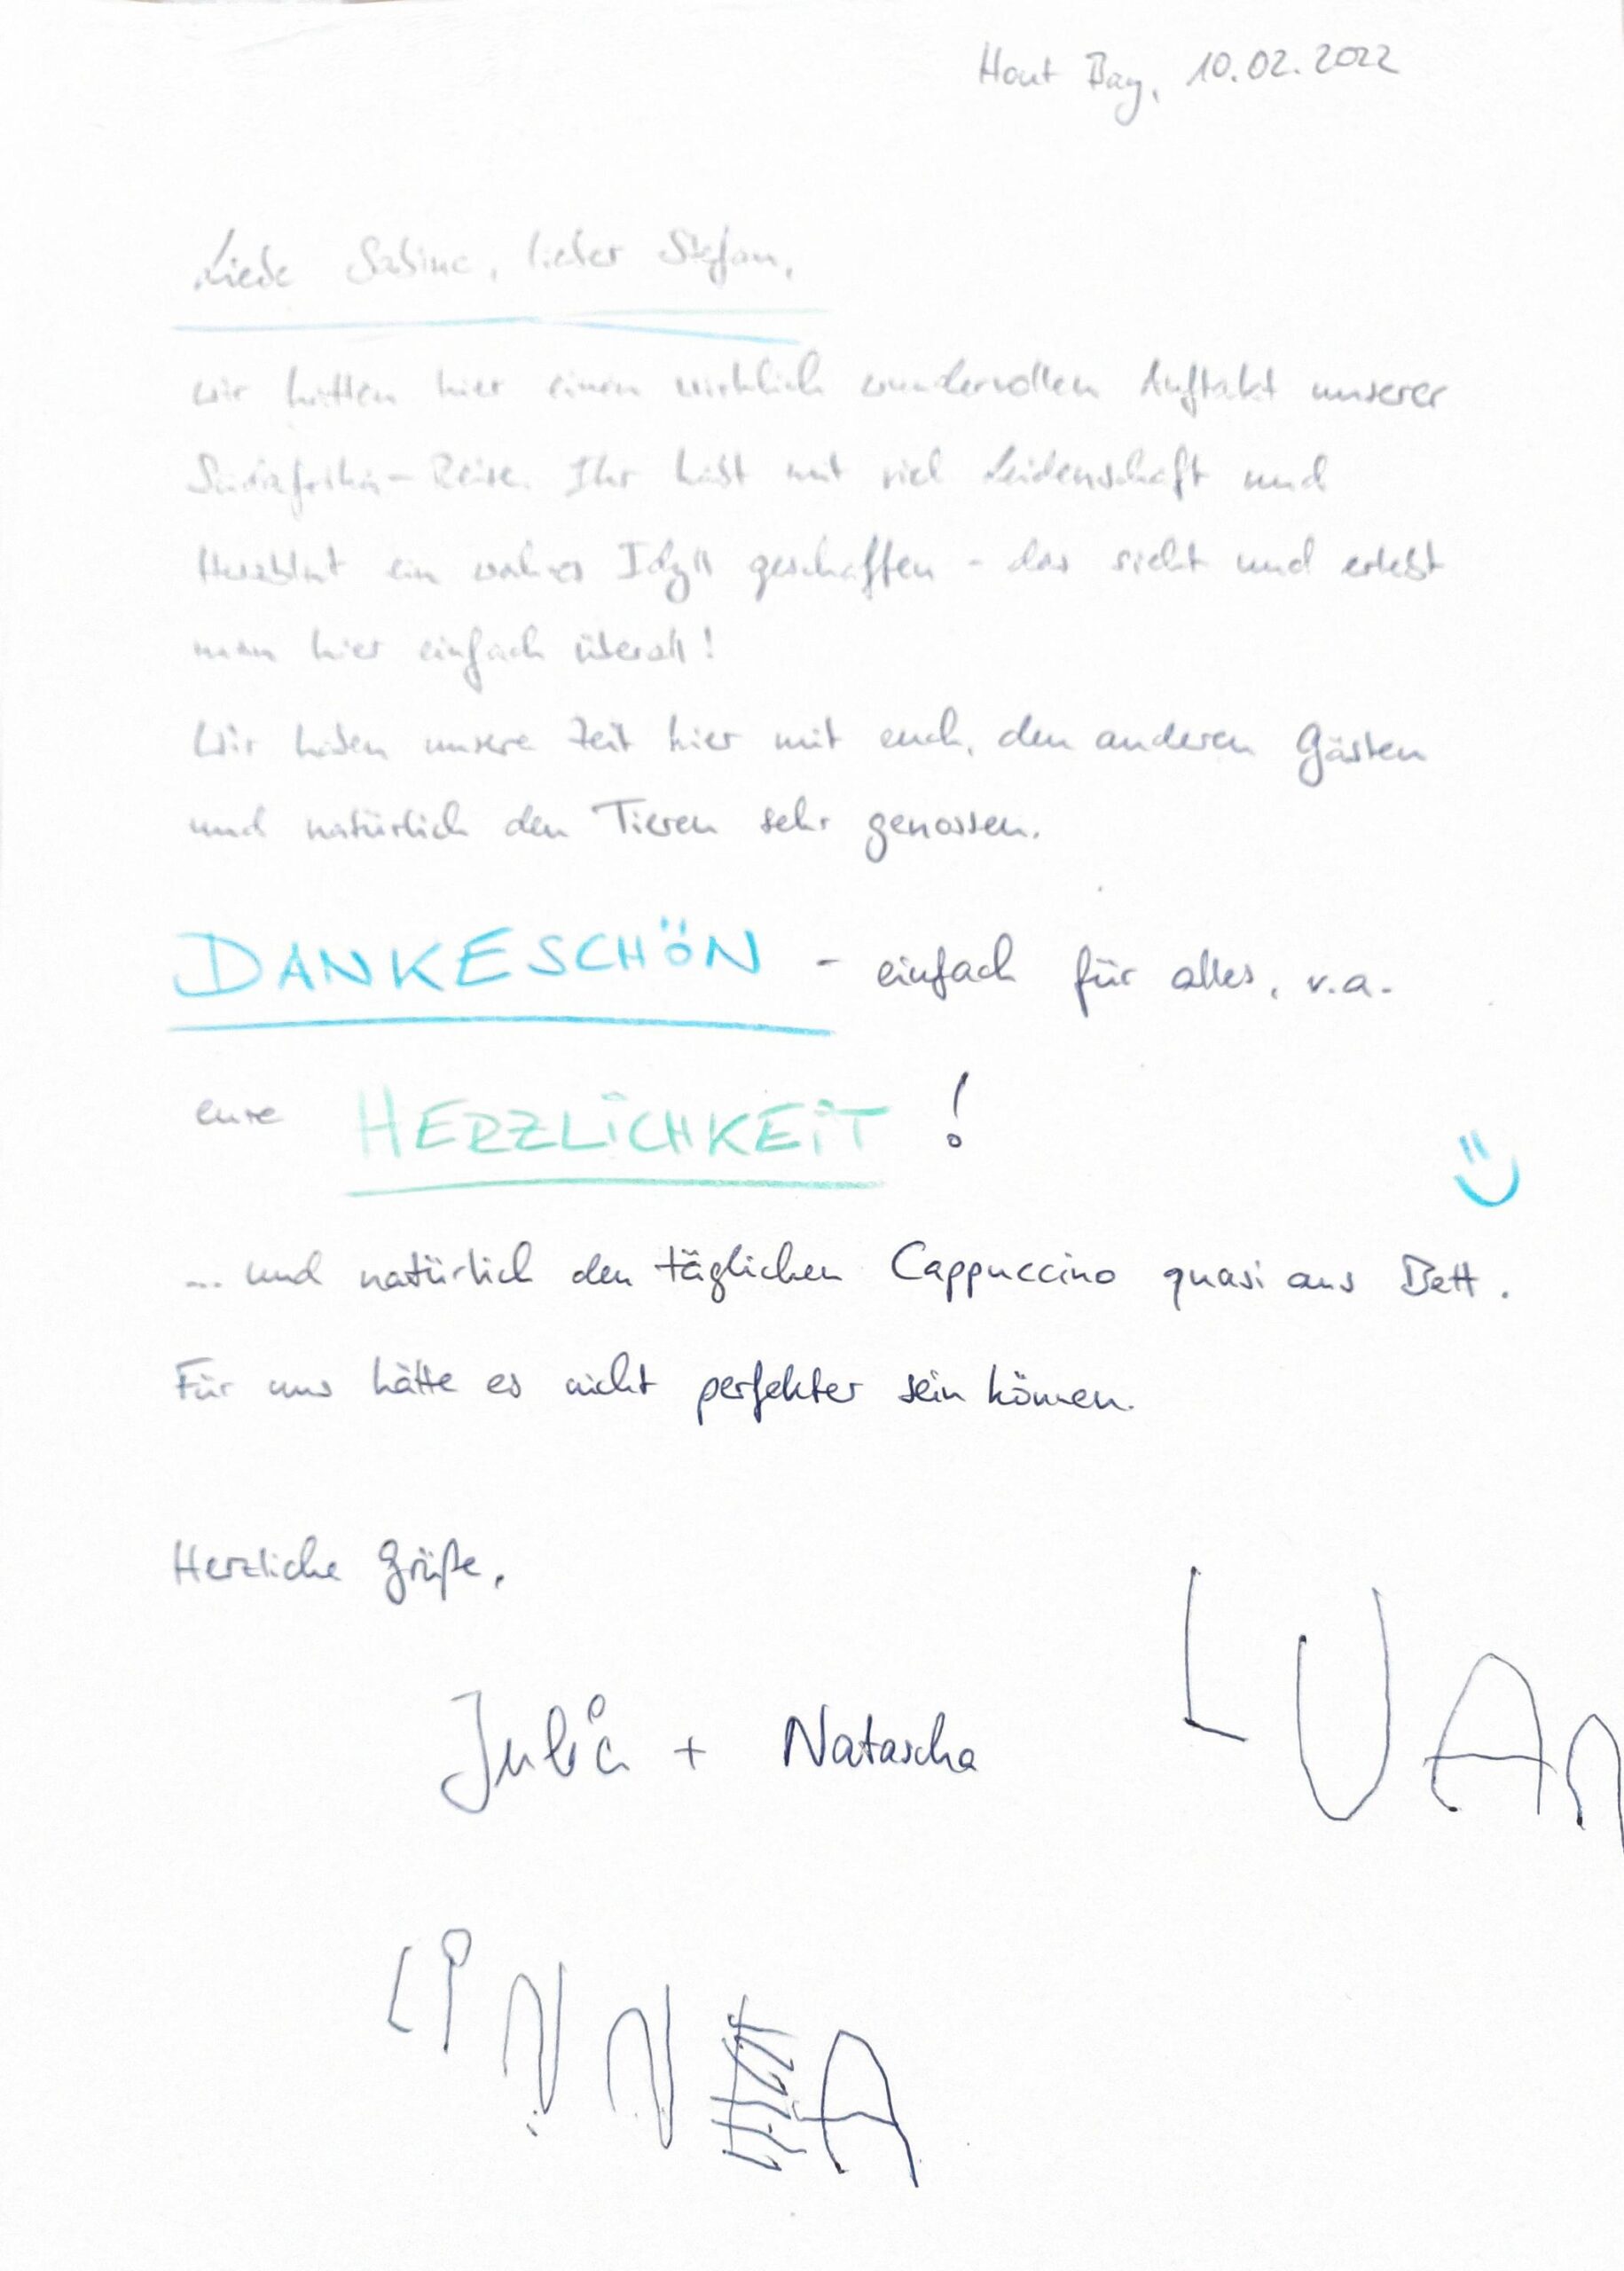 Hout Bay, 10.02.2022
Liebe Sabine, lieber Stefan,
wir hatten hier einen wirklich wundervollen Auftakt unserer
Südafrika-Reise. Ihr habt mit viel Leidenschaft und
Herzblut ein wahres Idyll geschaffen - das sieht und erlebt
man hier einfach überall!
Wir haben unsere Zeit hier mit euch, den anderen Gästen
und natürlich den Tieren sehr genossen.
DANKESCHÖN - einfach für alles, v.a.
eure HERZLICHKEIT!
... und natürlich den täglichen Cappuccino quasi ans Bett.
Für uns hätte es nicht perfekter sein können.
Herzliche Grüße,
Julia + Natascha
LUAN
LINNA